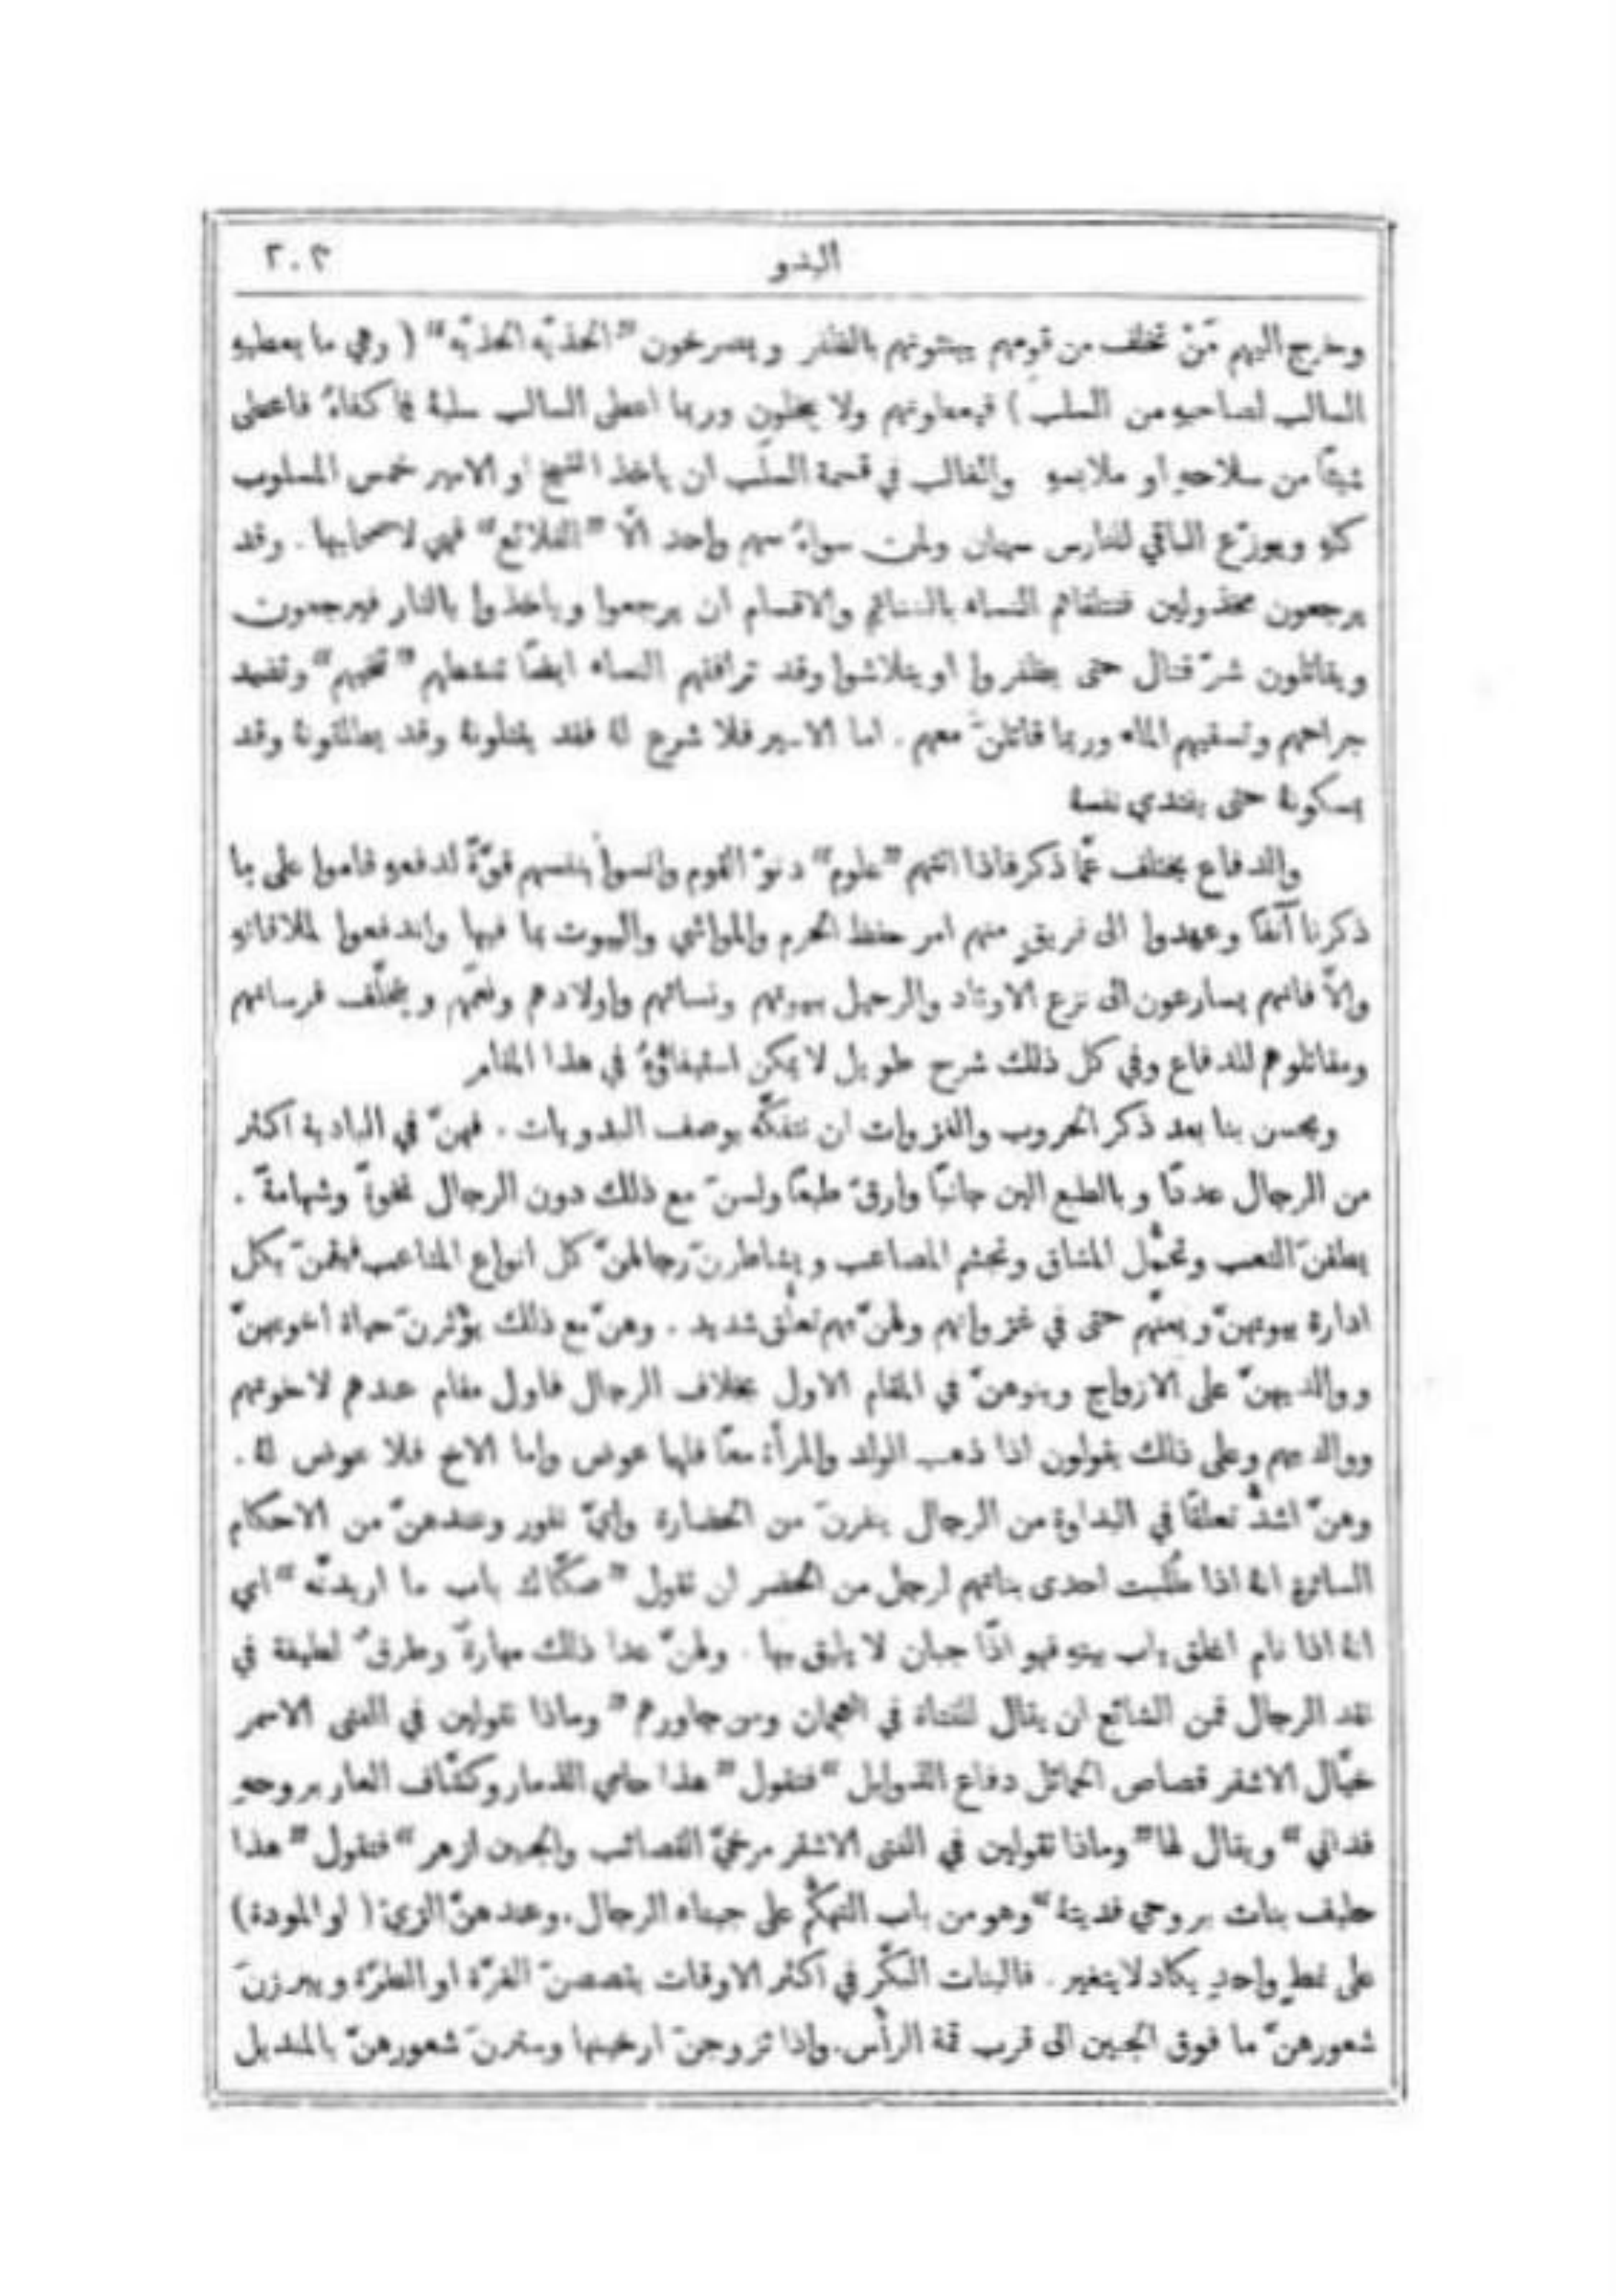 البدو ٢٠٣
وخرج اليهم مَنْ تخلف من قومهم يهنئونهم بالظفر ويصرخون "الحذيّه الحذيّه" ( وهي ما يعطيهِ
السالب لصاحبهِ من السلب ) فيعطونهم ولا يبخلون وربما اعطى السالب سلبهُ فاعطى
شيئًا من سلاحهِ او ملابسهِ والغالب في قسمة السلَب ان ياخذ الشيخ او الامير خمس المسلوب
كلهِ ويوزّع الباقي للفارس سهمان ولمن سواهُ سهم واحد الّا "القلائع" فهي لاصحابها . وقد
يرجعون مخذولين فتتلقاهم النساء بالشتائم والاقسام ان يرجعوا وياخذوا بالثار فيرجعون
ويقاتلون شرّ قتال حتى يظفروا او يتلاشوا وقد ترافقهم النساء ايضًا تنشطهم وتضمد
جراحهم وتسقيهم الماء وربما قاتلنَ معهم . اما الاسير فلا شرع لهُ فقد يقتلونهُ وقد يطلقونهُ وقد
يمسكونهُ حتى يفتدي نفسهُ
والدفاع يختلف عمَّا ذكر فاذا اتتهم "علوم" دنوّ القوم وانسوا بنفسهم قوَّةً لدفعهِ قاموا على ما
ذكرنا آنفًا وعهدوا الى فريقٍ منهم امر حفظ الحرم والمواشي والبيوت بما فيها واندفعوا لملاقاتهِ
والاَّ فانهم يسارعون الى نزع الاوتاد والرحيل ببيوتهم ونسائهم واولادهم ونعَمهم ويتخلَّف فرسانهم
ومقاتلوهم للدفاع وفي كل ذلك شرح طويل لا يمكن استيفاؤهُ في هذا المقام
ويحسن بنا بعد ذكر الحروب والغزوات ان نتفكَّه بوصف البدويات . فهنّ في البادية اكثر
من الرجال عددًا وبالطبع الين جانبًا وارقّ طبعًا ولسنَ مع ذلك دون الرجال نخوةً وشهامةً .
يطقنَ التعب وتحمُّل المشاق وتجشم المصاعب ويشاطرنَ رجالهنّ كل انواع المتاعب فيقمنَ بكل
ادارة بيوتهنّ ويعنّهم حتى في غزواتهم ولهنّ بهم تعلُّق شديد . وهنّ مع ذلك يؤثرنَ حياة اخوتهنّ
ووالديهنّ على الازواج وبنوهنّ في المقام الاول بخلاف الرجال فاول مقام عندهم لاخوتهم
ووالديهم وعلى ذلك يقولون اذا ذهب الولد والمرأة معًا فلهما عوض واما الاخ فلا عوض لهُ .
وهنّ اشدُّ تعلقًا في البداوة من الرجال ينفرنَ من الحضارة وأيّ نفور وعندهنّ من الاحكام
السائرة انهُ اذا طُلبت احدى بناتهم لرجل من الحضر ان تقول "صكَّاك باب ما اريدنّه" اي
انهُ اذا نام اغلق باب بيتهِ فهو اذًا جبان لا يليق بها . ولهنّ عدا ذلك مهارةٌ وطرقٌ لطيفة في
نقد الرجال فمن الشائع ان يقال للفتاة في العجمان ومن جاورهم "وماذا تقولين في الفتى الاسمر
خيَّال الاشقر قصاص الحمائل دفاع القبايل" فتقول "هذا حامي الذمار وكشَّاف العار بروحهِ
فداني" ويقال لها "وماذا تقولين في الفتى الاشقر مرخيّ القصائب والجبين ازهر" فتقول "هذا
حليف بنات بروحي فديتهُ" وهو من باب التهكُّم على جبناء الرجال . وعندهنّ الزيّ ( او المودة )
على نمطٍ واحدٍ يكاد لا يتغير . فالبنات البكر في اكثر الاوقات يقصصنَ الغرّة او الطرّة ويبرزنَ
شعورهنّ ما فوق الجبين الى قرب قمة الرأس . واذا تزوجنَ ارخينها وسترنَ شعورهنّ بالمنديل